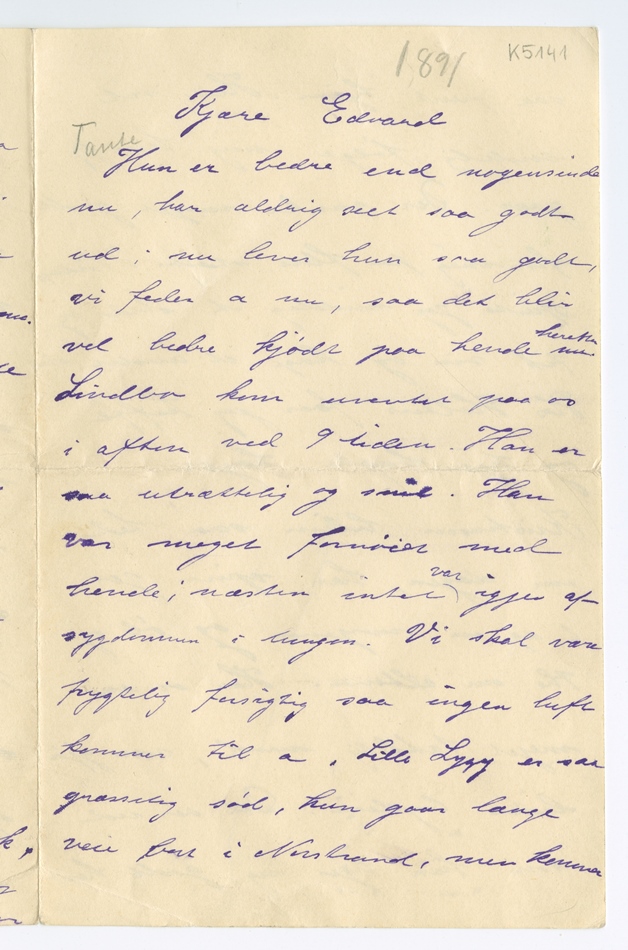 1891
K5141
Kjære Edvard
Tante
Hun er bedre end nogensinde
nu, har aldrig seet saa godt
ud; nu lever hun saa godt,
vi feder a nu, saa det blir
vel bedre kjødt paa hende herefter
Lindboe kom uventet paa os
i aften ved 9 tiden. Han er
saa utrættelig og snil. Han
var meget fornøiet med
hende; næsten intet var igjen af
sygdommen i lungen. Vi skal være
frygtelig forsigtig saa ingen luft
kommer til a. Lille Lyggy er saa
græsselig sød, hun gaar lange
veie bort i Norstrand, men kommer